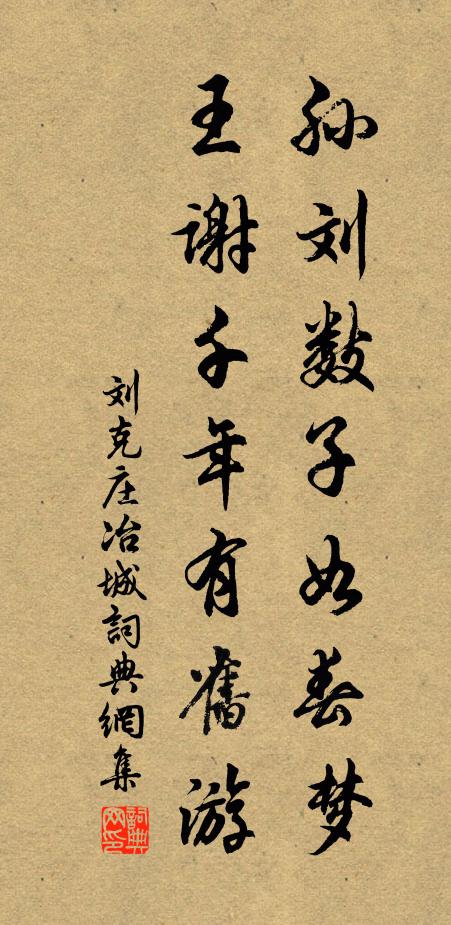 孙刘数子如春梦
王谢千年有舊游
刘克庄冶城詞典網集
詞典网印